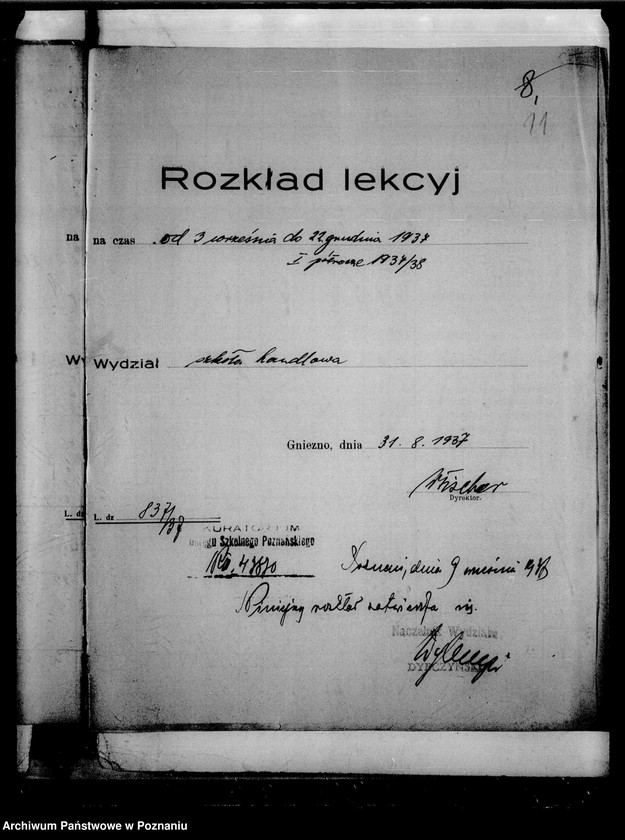 8,
11
Rozkład lekcyj
na na czas od 3 września do 22 grudnia 1937
I półrocze 1937/38
Wy Wydział szkoła handlowa
Gniezno, dnia 31. 8. 1937
Dyrektor.
L. dz L. dz 837/37
KURATORIUM
Szkolnego Poznańskiego
Poznań, dnia 9 września
Niniejszy rozkład zatwierdza się.
Naczelnik Wydziału
Archiwum Państwowe w Poznaniu